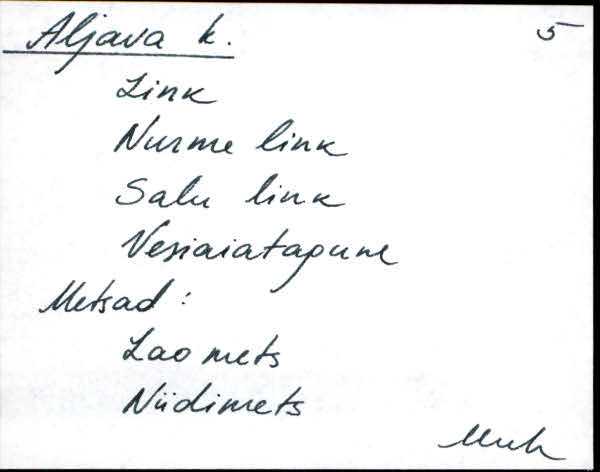 Aljava k. 5
Link
Nurme link
Salu link
Vesiaiatagune
Metsad:
Lao mets
Niidimets
Muh